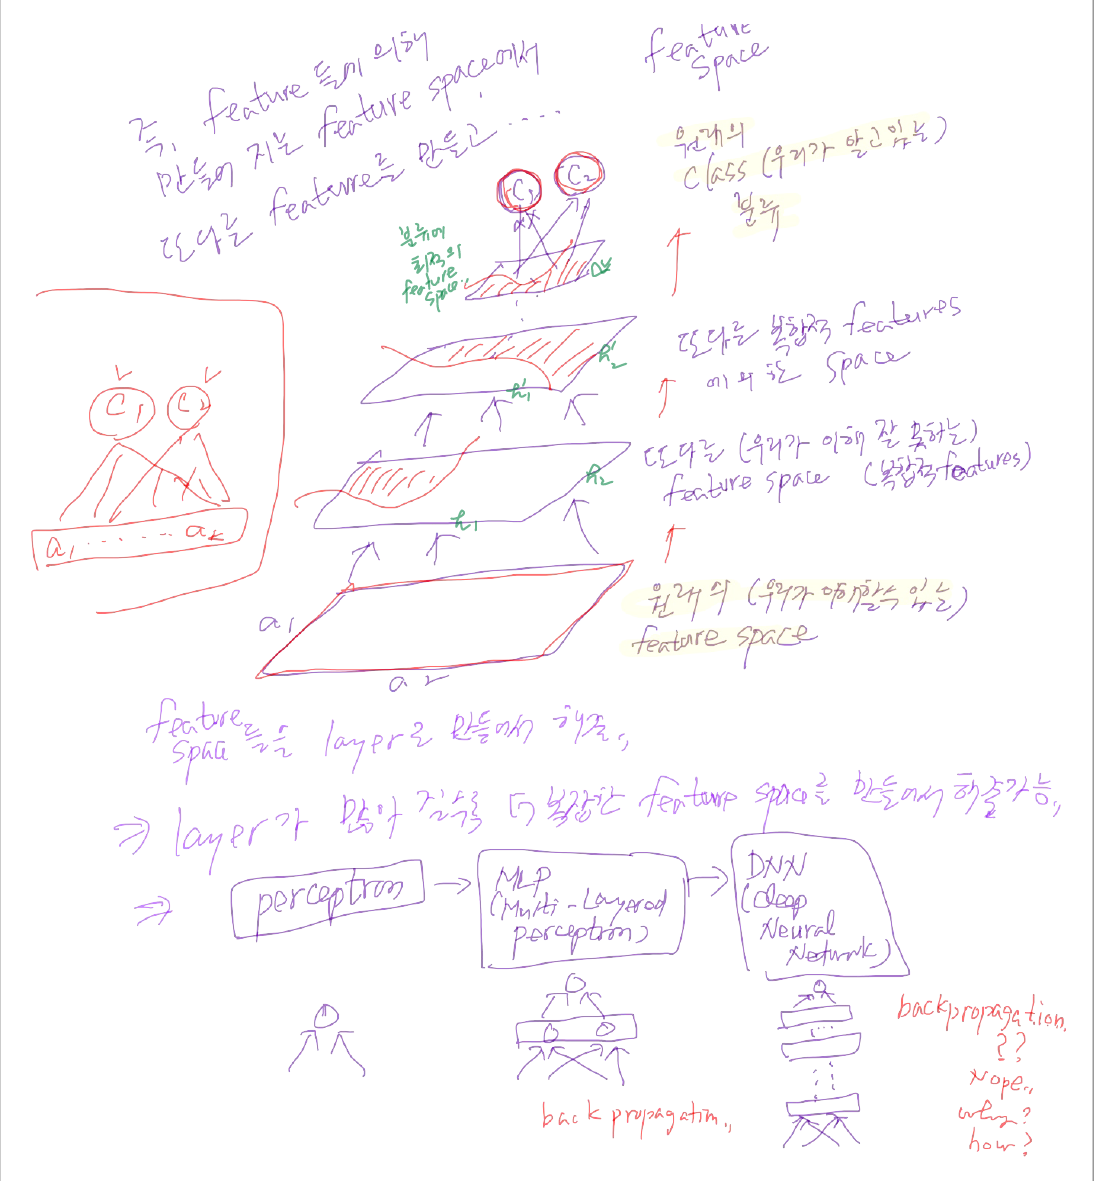 즉, feature 들에 의해
만들어 지는 feature space에서
또다른 feature를 만들고 ·····
feature
space
원래의
class (우리가 알고 있는)
분류
C1
C2
분류에
최적의
feature
space..
또다른 복합적 features
에 의한 space
h'1
h'2
C1
C2
a1 ······· ak
또다른 (우리가 이해 잘 못하는)
feature space (복합적 features)
h1
h2
원래의 (우리가 이해할수 있는)
feature space
a1
a2
feature
space 들을 layer로 만들어서 해줌..
⇒ layer가 많아 질수록 더 복잡한 feature space를 만들어서 해줄가능..
⇒ perceptron → MLP
(Multi-Layered
perceptron)
→ DNN
(deep
Neural
Network)
backpropagation..
backpropagation.
??
Nope..
why?
how?